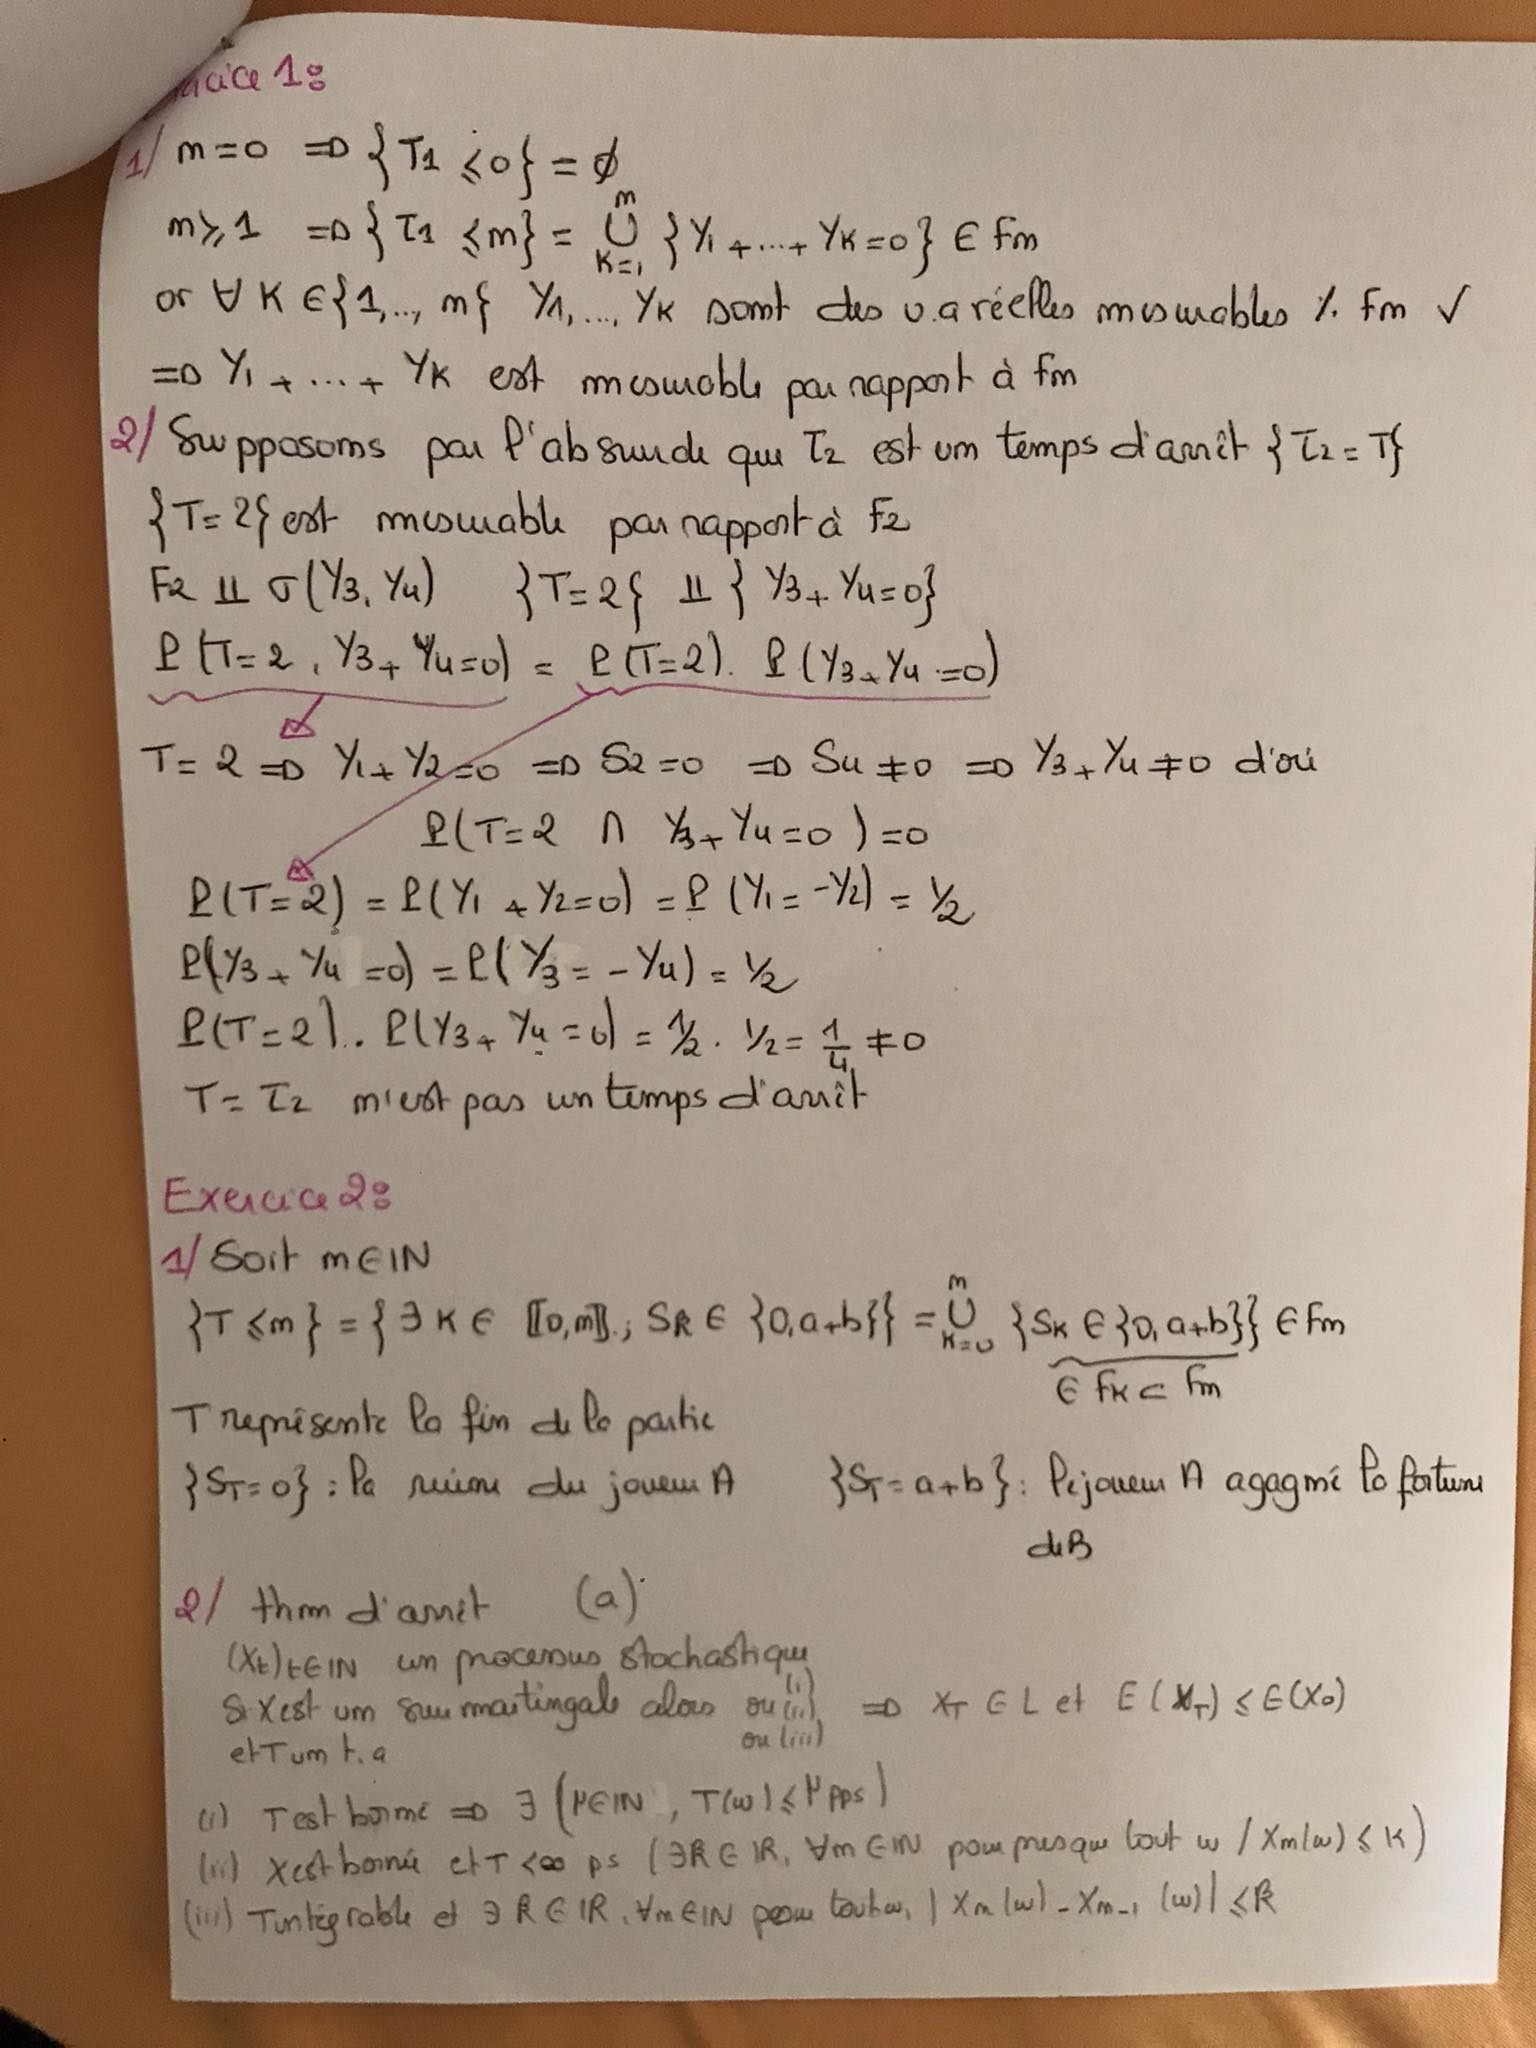 cice 1:
1/ n=0 => {T1 ≤ 0} = ∅
n≥1 => {τ1 ≤ n} = ⋃_{K=1}^{n} {Y1 + ... + YK = 0} ∈ Fn
or ∀ K ∈ {1,.., n} Y1, ..., YK sont des v.a réelles mesurables %. Fn ✓
=> Y1 + ... + YK est mesurable par rapport à Fn
2/ Supposons par l'absurde que τ2 est un temps d'arrêt {τ2 = T}
{T=2} est mesurable par rapport à F2
F2 ⫫ σ(Y3, Y4) {T=2} ⫫ {Y3 + Y4 = 0}
P(T=2, Y3 + Y4 = 0) = P(T=2). P(Y3 + Y4 = 0)
T=2 => Y1 + Y2 = 0 => S2=0 => S4 ≠ 0 => Y3 + Y4 ≠ 0 d'où
P(T=2 ∩ Y3 + Y4 = 0) = 0
P(T=2) = P(Y1 + Y2 = 0) = P(Y1 = -Y2) = 1/2
P(Y3 + Y4 = 0) = P(Y3 = -Y4) = 1/2
P(T=2). P(Y3 + Y4 = 0) = 1/2 . 1/2 = 1/4 ≠ 0
T = τ2 n'est pas un temps d'arrêt
Exercice 2:
1/ Soit n ∈ IN
{T ≤ n} = {∃ K ∈ ⟦0,n⟧, ; SK ∈ {0, a+b}} = ⋃_{K=0}^{n} {SK ∈ {0, a+b}} ∈ Fn
∈ FK ⊂ Fn
T représente la fin de la partie
{ST=0} : la ruine du joueur A {ST = a+b} : le joueur A a gagné la fortune
de B
2/ thm d'arrêt (a)
(Xt)t∈IN un processus stochastique
Si X est un surmartingale alors (i) ou (ii) ou (iii) => XT ∈ L et E(XT) ≤ E(X0)
et T un t.a
(i) T est borné => ∃ (μ∈IN, T(ω) ≤ μ pps)
(ii) X est bornée et T < ∞ ps (∃K ∈ IR, ∀n ∈ IN pour presque tout ω / Xn(ω) ≤ K)
(iii) T intégrable et ∃ K ∈ IR, ∀n∈IN pour tout ω, |Xn(ω) - Xn-1 (ω)| ≤ K